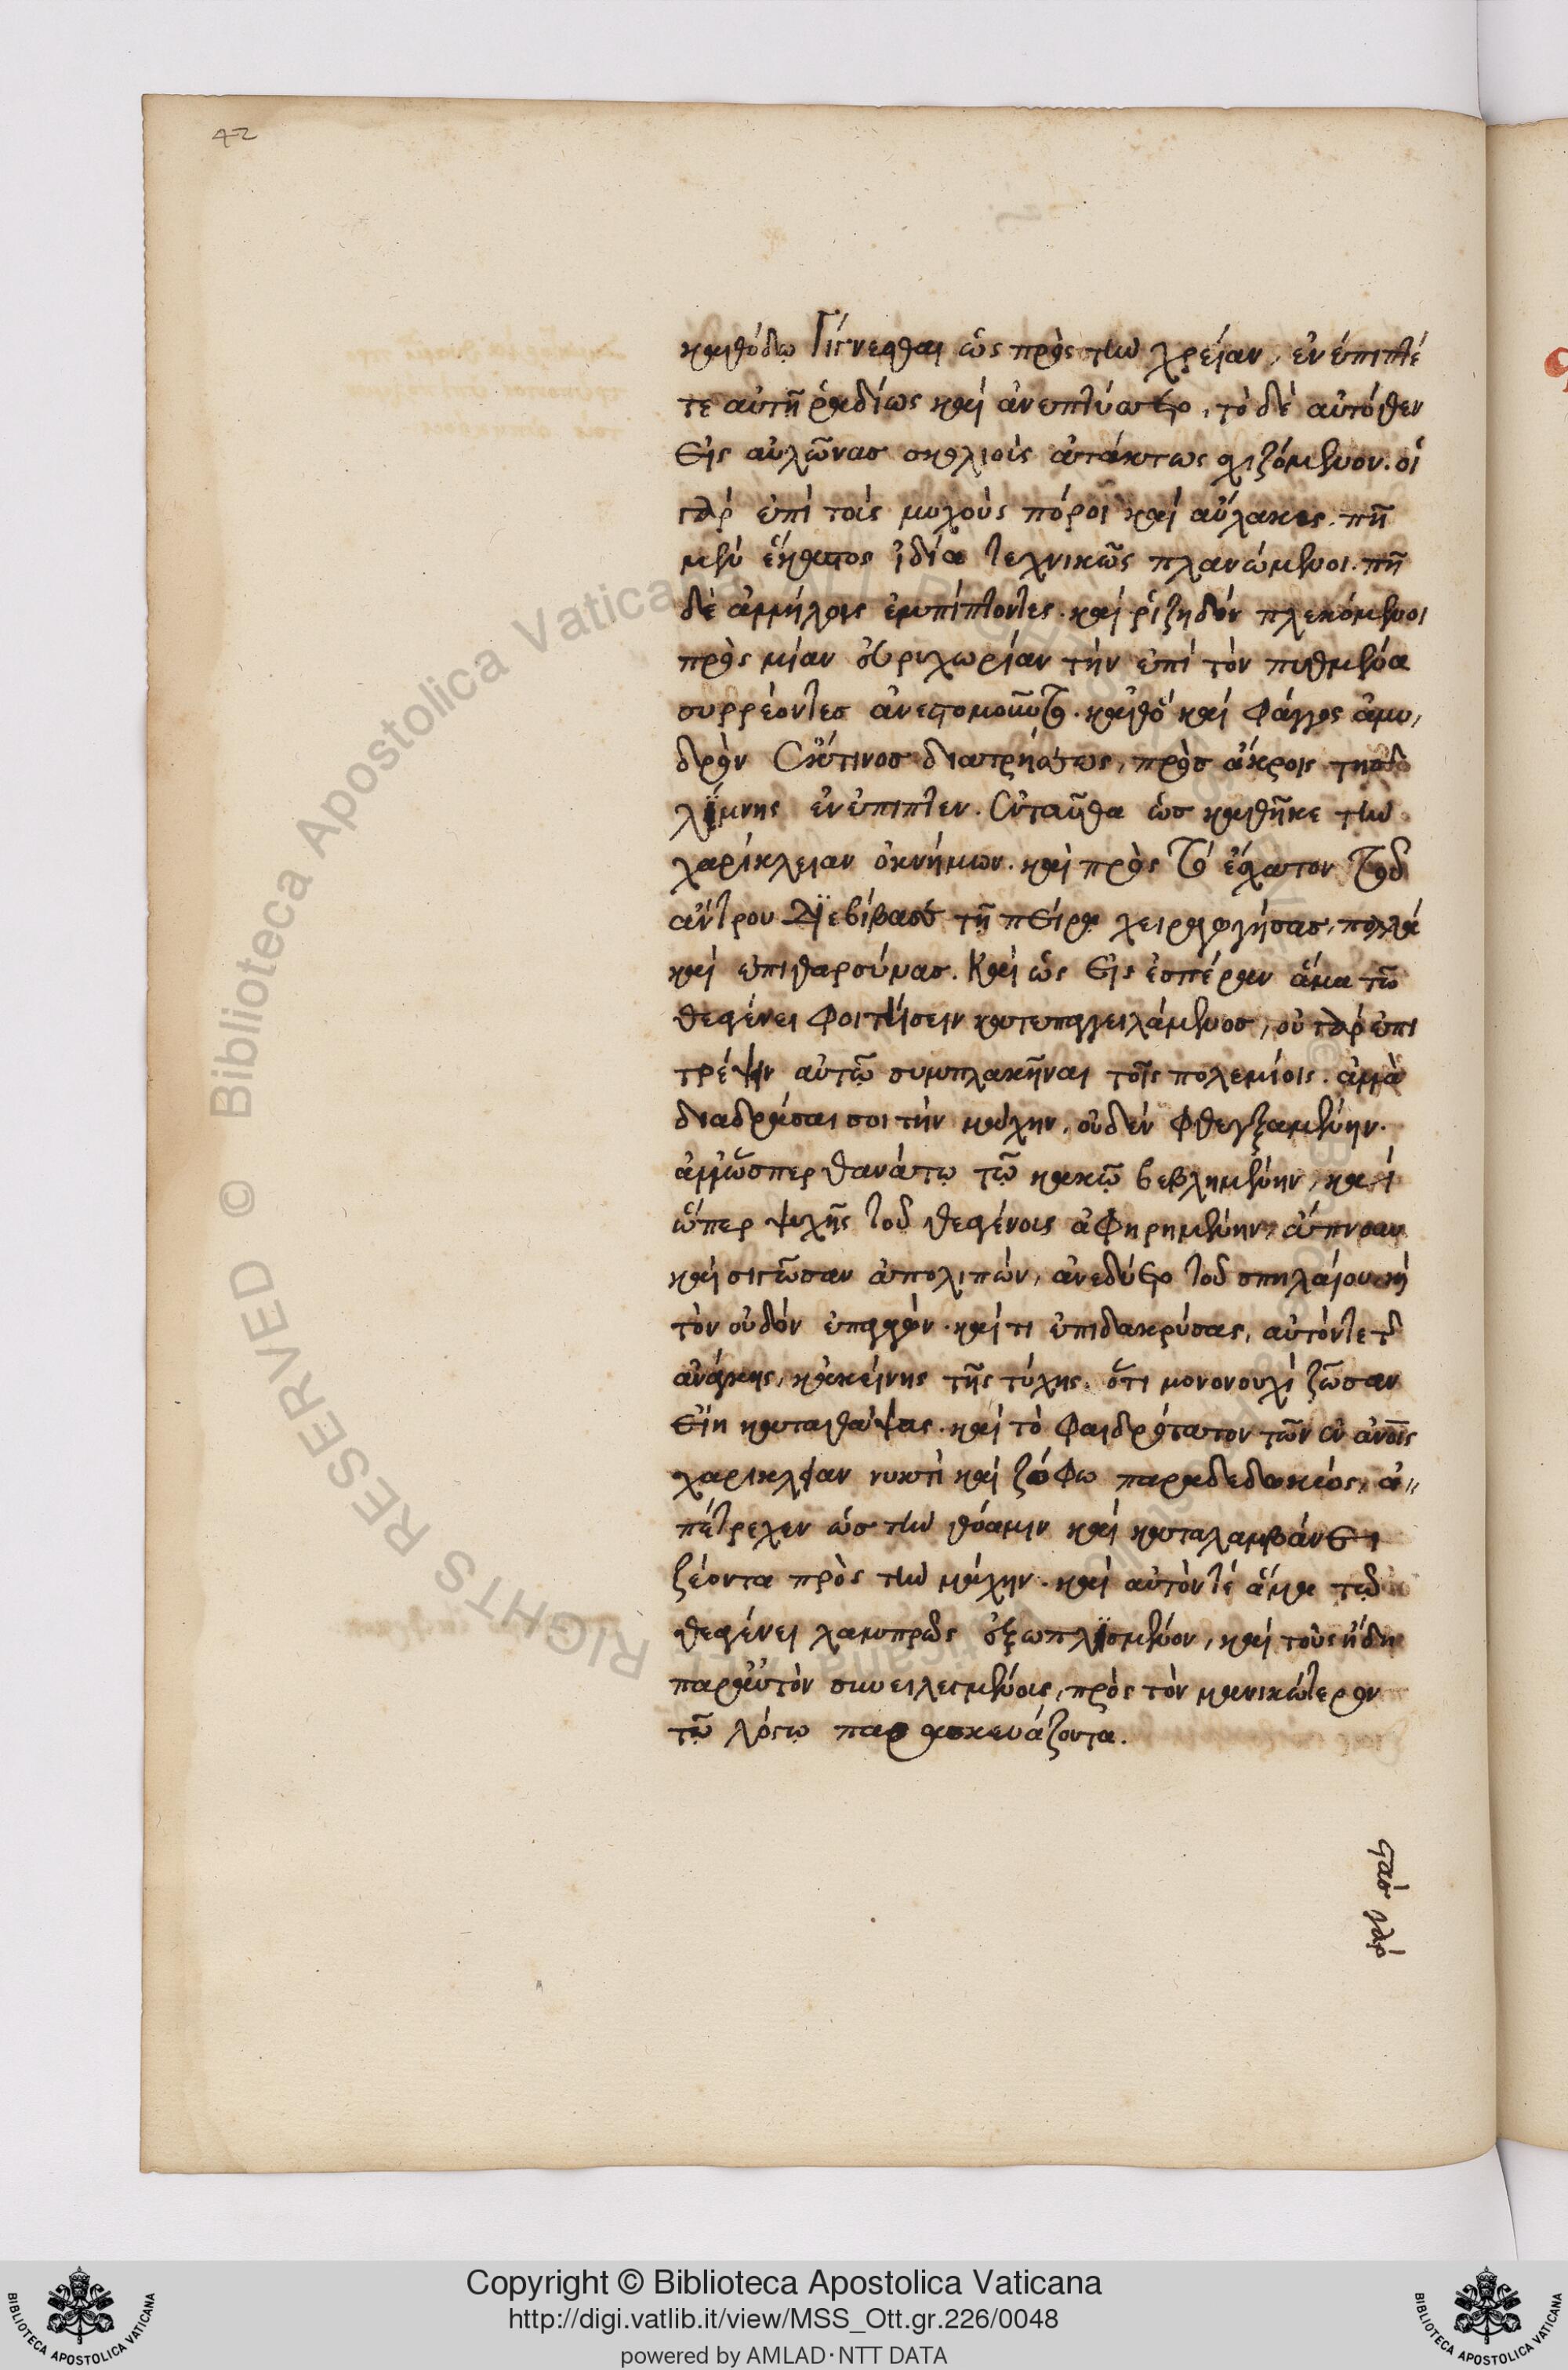 42
καθόδω γίγνεσθαι ὡς πρὸς τὴν χρείαν, ἐνέπιπτέ
τε αὐτῆ ῥαδίως καὶ ἀνεπτύσσετο, τὸ δὲ αὐτόθεν
εἰς αὐλῶνας σκολιοὺς ἀτάκτως σχιζόμενον. οἱ
γὰρ ἐπὶ τοὺς μυχοὺς πόροι καὶ αὔλακες. πῆ
μὲν ἕκαστος ἰδία τεχνικῶς πλανώμενοι. πῆ
δὲ ἀλλήλοις ἐμπίπτοντες. καὶ ῥιζηδόν πλεκόμενοι
πρὸς μίαν εὐρυχωρίαν τὴν ἐπὶ τὸν πυθμένα
συρρέοντες ἀνεστομοῦντο. καθὸ καὶ φέγγος ἀμυ,
δρὸν ἔκτινος διατρήσεως, πρὸς ἄκροις τῆς
λίμνης ἐνέπιπτεν. ἐνταῦθα ὡς καθῆκε τὴν
χαρίκλειαν ὁ κνήμων. καὶ πρὸς τὸ ἔσχατον τοῦ
ἄντρου διεβίβασε τῆ πείρα χειραγωγήσας, πολλὰ
καὶ ἐπιθαρσύνας. καὶ ὡς εἰς ἑσπέραν ἅμα τῶ
θεαγένει φοιτήσειν κατεπαγγειλάμενος, οὐ γὰρ ἐπι
τρέψειν αὐτῶ συμπλακῆναι τοῖς πολεμίοις. ἀλλὰ
διαδράσαι σοι τὴν μάχην, οὐδὲν φθεγξαμένην.
ἀλλ' ὥσπερ θανάτω τῶ κακῶ βεβλημένην, καὶ
ὥπερ ψυχῆς τοῦ θεαγένους ἀφηρημένην, ἄπνουν
καὶ σιγῶσαν ἀπολιπών, ἀνεδύετο τοῦ σπηλαίου. καὶ
τὸν οὐδὸν ἐπαγαγών. καί τι ἐπιδακρύσας, αὐτόν τε τῆς
ἀνάγκης, κἀκείνης τῆς τύχης. ὅτι μονονουχὶ ζῶσαν
εἴη καταθάψας. καὶ τὸ φαιδρότατον τῶν ἐν ἀνοις
χαρίκλειαν νυκτὶ καὶ ζόφω παραδεδωκὼς, ἀ-
πέτρεχεν ὡς τὸν θύαμιν καὶ καταλαμβάνει
ζέοντα πρὸς τὴν μάχην. καὶ αὐτόν τε ἅμα τῶ
θεαγένει λαμπρῶς ἐξωπλισμένον, καὶ τοὺς ἤδη
παρ' αὐτὸν συνειλεγμένους, πρὸς τὸν μανικώτερον
τῶ λόγω παρασκευάζοντα.
στὰς γὰρ
© Biblioteca Apostolica Vaticana ALL RIGHTS RESERVED
Copyright © Biblioteca Apostolica Vaticana
http://digi.vatlib.it/view/MSS_Ott.gr.226/0048
powered by AMLAD·NTT DATA
BIBLIOTECA APOSTOLICA VATICANA
BIBLIOTECA APOSTOLICA VATICANA